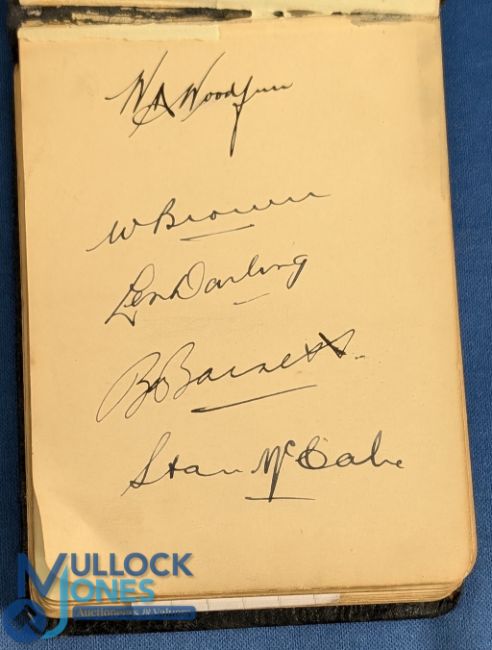 W A Woodfull
W Brown
Len Darling
B A Barnett
Stan McCabe
MULLOCK
JONES
Auctioneers & Valuers